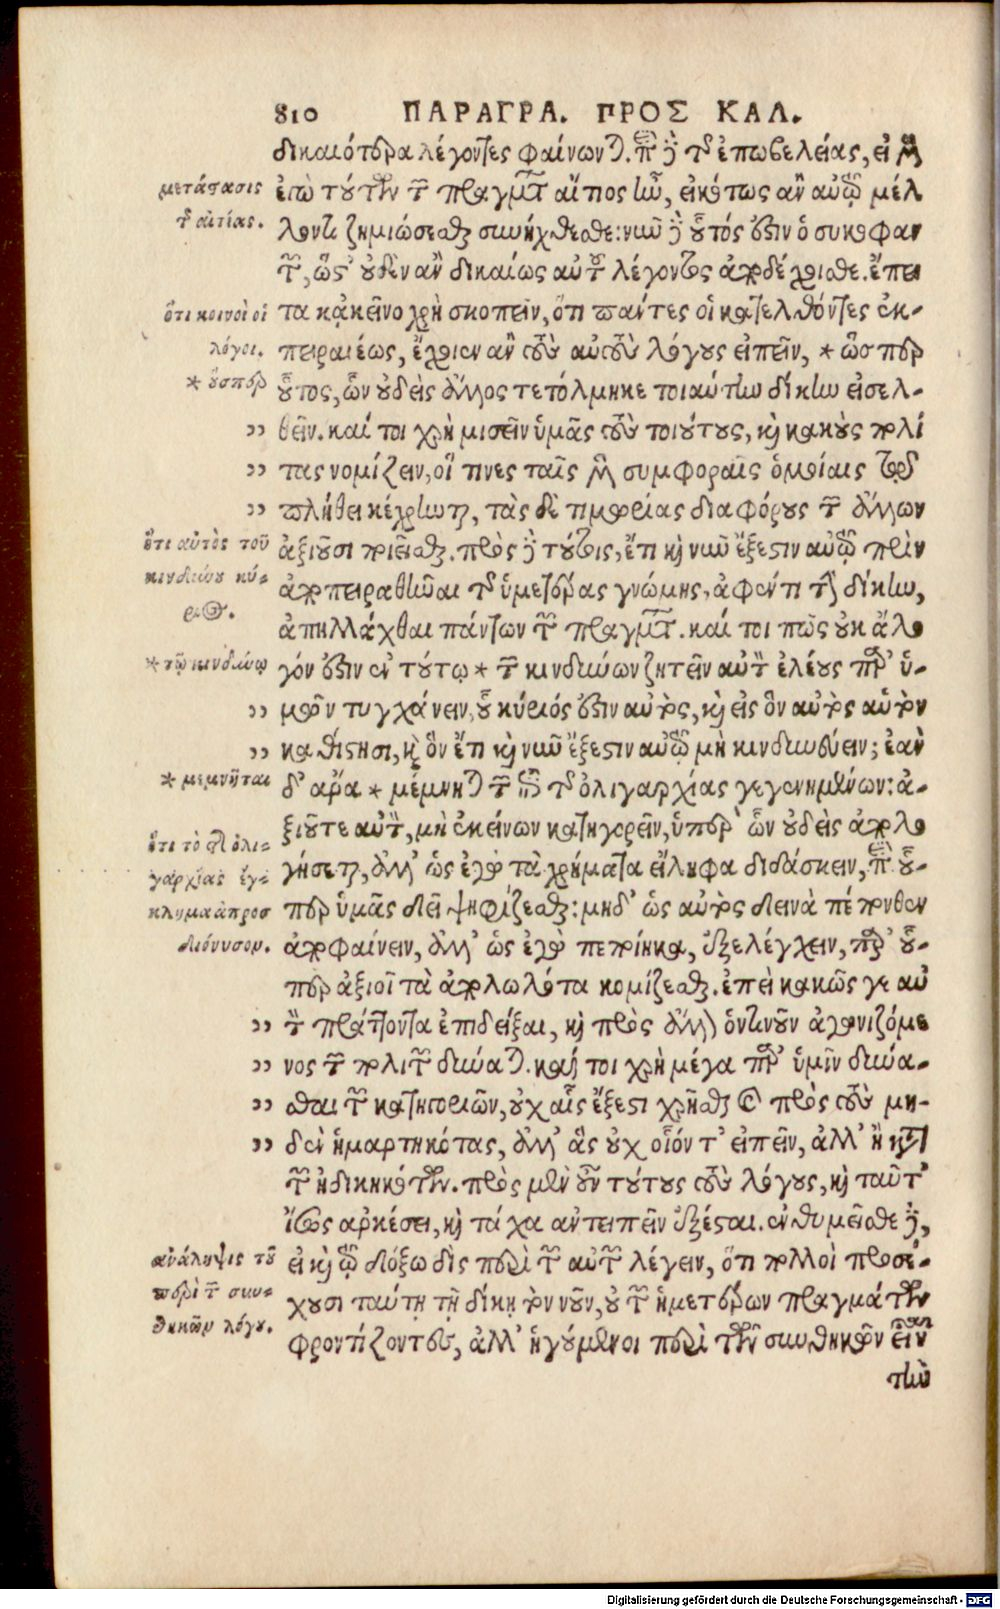 810 ΠΑΡΑΓΡΑ. ΠΡΟΣ ΚΑΛ.
δικαιότερα λέγοντες φαίνωνται. περὶ δὲ τῆς ἐπωβελείας, εἰ μὲν
μετάστασις
ἐγὼ τούτων τῶν πραγμάτων αἴτιος ἦν, εἰκότως ἂν αὐτῷ μέλ
τῆς αἰτίας.
λοντι ζημιώσεσθαι συνήχθεσθε: νῦν δὲ οὗτός ἐστιν ὁ συκοφαν
τῶν, ὥστ' οὐδὲν ἂν δικαίως αὐτοῦ λέγοντος ἀποδέχοισθε. ἔπει
ὅτι κοινοὶ οἱ
τα κἀκεῖνο χρὴ σκοπεῖν, ὅτι πάντες οἱ κατελθόντες ἐκ-
λόγοι.
πειραιέως, ἔχοιεν ἂν τοὺς αὐτοὺς λόγους εἰπεῖν, * ὥσπερ
* οὕσπερ
οὗτος, ὧν οὐδεὶς ἄλλος τετόλμηκε τοιαύτην δίκην εἰσελ-
,, θεῖν. καί τοι χρὴ μισεῖν ὑμᾶς τοὺς τοιούτους, καὶ κακοὺς πολί
,, τας νομίζειν, οἵ τινες ταῖς μὲν συμφοραῖς ὁμοίαις τῷ
,, πλήθει κέχρηνται, τὰς δὲ τιμωρίας διαφόρους τῶν ἄλλων
ὅτι αὐτὸς τοῦ
ἀξιοῦσι ποιεῖσθαι. πρὸς δὲ τούτοις, ἔτι καὶ νῦν ἔξεστιν αὐτῷ πρὶν
κινδύνου κύ-
ἀποπειραθῆναι τῆς ὑμετέρας γνώμης, ἀφέντι τὴν δίκην,
ριος.
ἀπηλλάχθαι πάντων τῶν πραγμάτων. καί τοι πῶς οὐκ ἄλο
* τῷ κινδύνῳ
γόν ἐστιν ἐν τούτῳ * τῶν κινδύνων ζητεῖν αὐτὸν ἐλέους παρ' ὑ-
,, μῶν τυγχάνειν, οὗ κύριός ἐστιν αὐτὸς, καὶ εἰς ὃν αὐτὸς αὑτὸν
,, καθίστησι, καὶ ὃν ἔτι καὶ νῦν ἔξεστιν αὐτῷ μὴ κινδυνεύειν; ἐὰν
* μεμνῆται
δ' ἄρα * μέμνηται τῶν ἐπὶ τῆς ὀλιγαρχίας γεγενημένων: ἀ-
ξιοῦτε αὐτὸν, μὴ ἐκείνων κατηγορεῖν, ὑπὲρ ὧν οὐδεὶς ἀπολο
ὅτι τὸ τῆς ὀλι-
γήσεται, ἀλλ' ὡς ἐγὼ τὰ χρήματα εἴληφα διδάσκειν, περὶ οὗ-
γαρχίας ἔγ-
κλημα ἀπροσ
περ ὑμᾶς δεῖ ψηφίζεσθαι: μηδ' ὡς αὐτὸς δεινὰ πέπονθεν
διόνυσον.
ἀποφαίνειν, ἀλλ' ὡς ἐγὼ πεποίηκα, ἐξελέγχειν, παρ' οὗ-
περ ἀξιοῖ τὰ ἀπολωλότα κομίζεσθαι. ἐπεὶ κακῶς γε αὑ
,, τὸν πράττοντα ἐπιδεῖξαι, καὶ πρὸς ἄλλον ὁντινοῦν ἀγωνιζόμε
,, νος τῶν πολιτῶν δύναται. καί τοι χρὴ μέγα παρ' ὑμῖν δύνα-
,, σθαι τῶν κατηγοριῶν, οὐχ αἷς ἔξεστι χρῆσθαι καὶ πρὸς τοὺς μη-
,, δὲν ἡμαρτηκότας, ἀλλ' ἃς οὐχ οἷόν τ' εἰπεῖν, ἀλλ' ἢ κατὰ
τῶν ἠδικηκότων. πρὸς μὲν οὖν τούτους τοὺς λόγους, καὶ ταῦτ'
ἴσως ἀρκέσει, καὶ τάχα ἀντειπεῖν ἐξέσται. ἐνθυμεῖσθε δὲ,
ἀνάληψις τοῦ
εἰ καὶ τῷ δόξω δὶς περὶ τῶν αὐτῶν λέγειν, ὅτι πολλοὶ προσέ-
περὶ τῶν συν-
χουσι ταύτῃ τῇ δίκῃ τὸν νοῦν, οὐ τῶν ἡμετέρων πραγμάτων
θηκῶν λόγου.
φροντίζοντες, ἀλλ' ἡγούμενοι περὶ τῶν συνθηκῶν εἶναι
τὴν
Digitalisierung gefördert durch die Deutsche Forschungsgemeinschaft - DFG